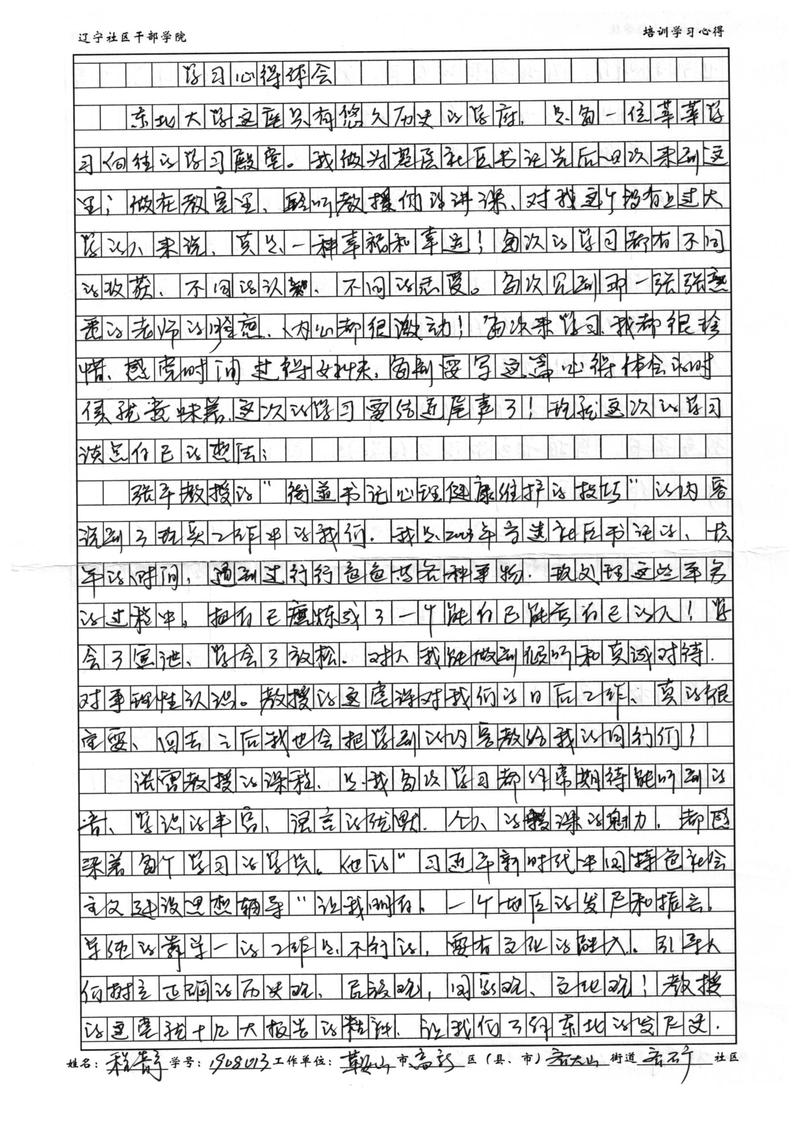 辽宁社区干部学院 培训学习心得
学习心得体会
东北大学这座具有悠久历史的学府，是每一位莘莘学
习向往的学习殿堂。我做为基层社区书记先后四次来到这
里，做在教室里、聆听教授们的讲课、对我这个没有上过大
学的人来说，真是一种幸福和幸运！每次的学习都有不同
的收获，不同的认知，不同的感受。每次见到那一张张熟
悉的老师的脸庞，内心都很激动！每次来学习，我都很珍
惜、感觉时间过得好快，每到要写这篇心得体会的时
候就意味着，这次的学习要结近尾声了！现就这次的学习
谈点自己的想法：
张平教授的“街道书记心理健康维护的技巧”的内容
说到了现实工作中的我们．我是2003年当选社区书记的、
年的时间，遇到过行行色色的各种事物．现处理这些事务
的过程中，把自己磨炼成了一个能自己的人！学
会了宣泄、学会了放松。对人我能做到倾听和真诚对待．
对事理性认识。教授的这堂课对我们的日后工作、真的很
重要、回去之后我也会把学到的内容教给我的同行们！
洪富教授的课程、是我每次学习都非常期待能听到的
音、学识的丰富，语言的幽默．个人的授课的魅力．都感
染着每个学习的学员。他的“习近平新时代中国特色社会
主义建设思想辅导”让我明白，一个地区的发展和振兴，
单纯的单一的工作是不行的，要有文化的融入。引导人
们树立正确的历史观、民族观，国家观、文化观！教授
的这堂 十九大报告的精神．让我们了解东北的发展史．
姓名： 程 学号：1908013 工作单位：鞍山市高新区（县、市） 大山街道 社区